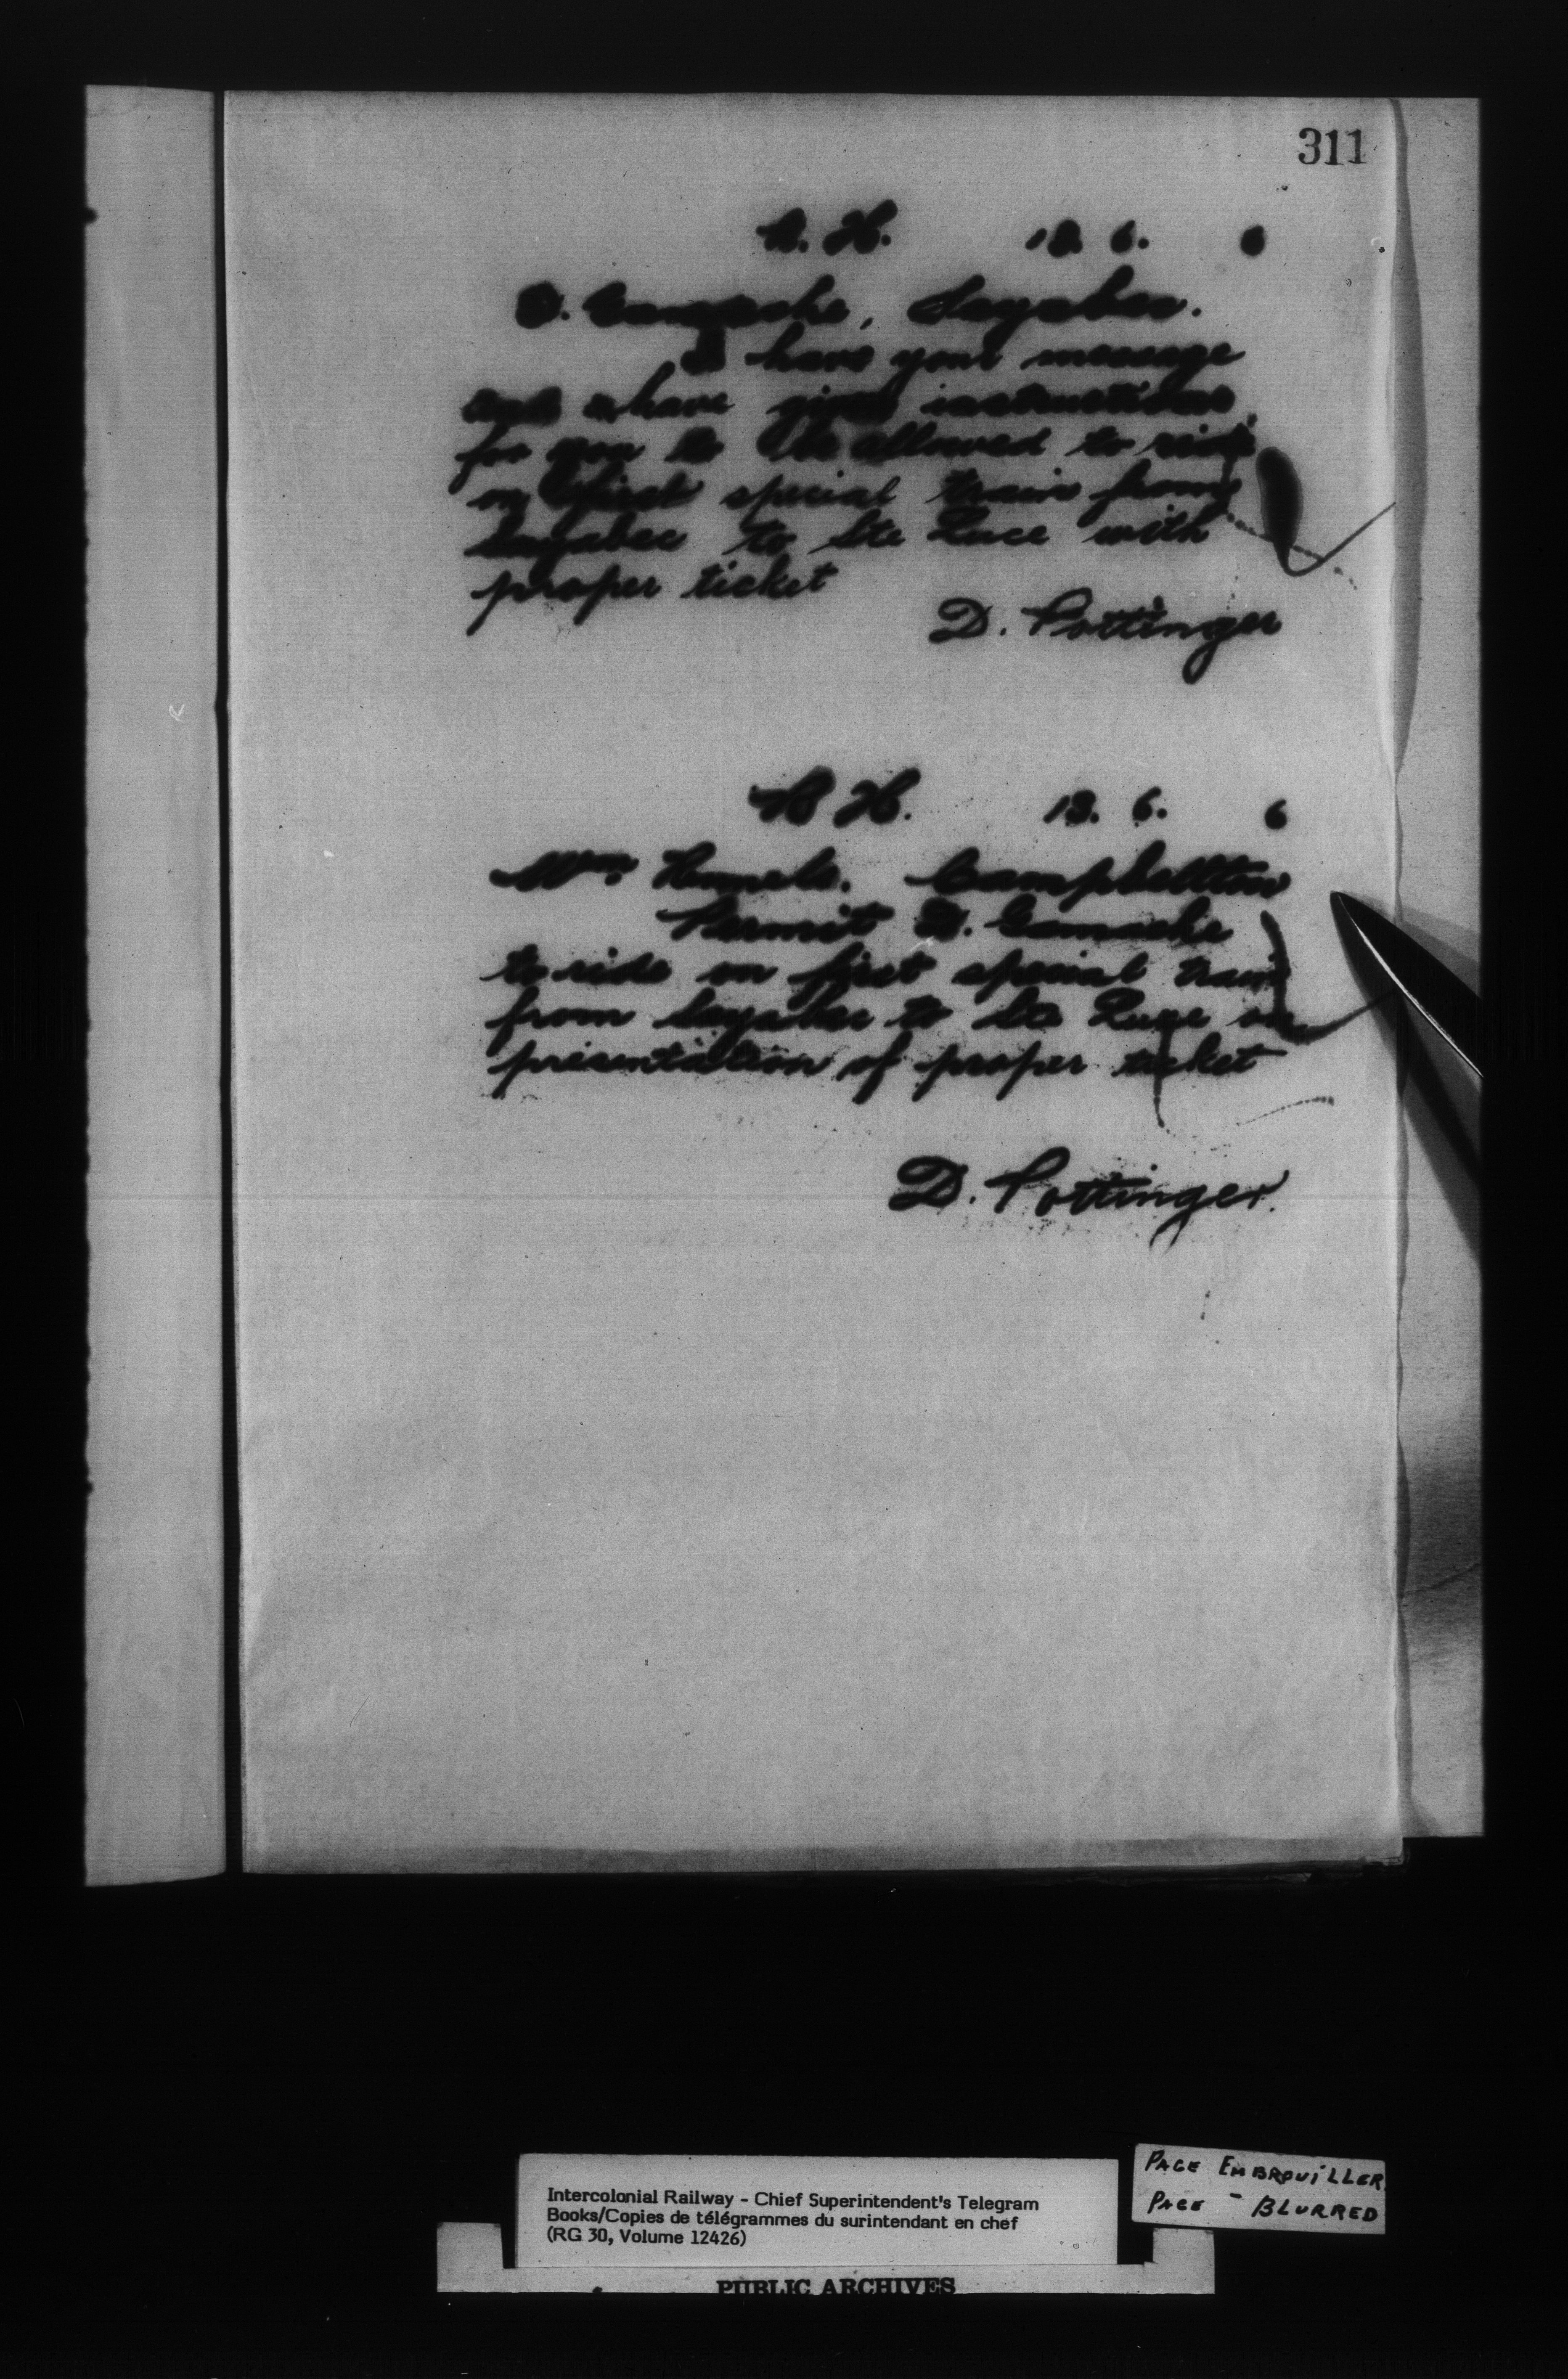 311
R. H. 13. 6. 6
D. Gamache, Sayabec.
I have your message
and have given instructions
for you to be allowed to ride
on first special train from
Sayabec to Ste Luce with
proper ticket
D. Pottinger
R H. 13. 6. 6
Wm. Campbellton
Permit D. Gamache
to ride on first special train
from Sayabec to Ste Luce on
presentation of proper ticket
D. Pottinger.
Intercolonial Railway - Chief Superintendent's Telegram
Books/Copies de télégrammes du surintendant en chef
(RG 30, Volume 12426)
PAGE EMBROUILLER.
PAGE - BLURRED
PUBLIC ARCHIVES